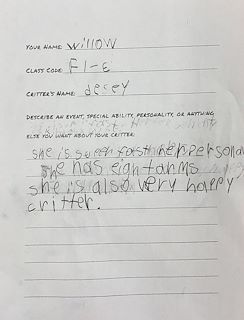 YOUR NAME: Willow
CLASS CODE: F1-E
CRITTER'S NAME: decey
DESCRIBE AN EVENT, SPECIAL ABILITY, PERSONALITY, OR ANYTHING
ELSE YOU WANT ABOUT YOUR CRITTER:
she is fast her
she has eight arms
she is also very happy
critter.